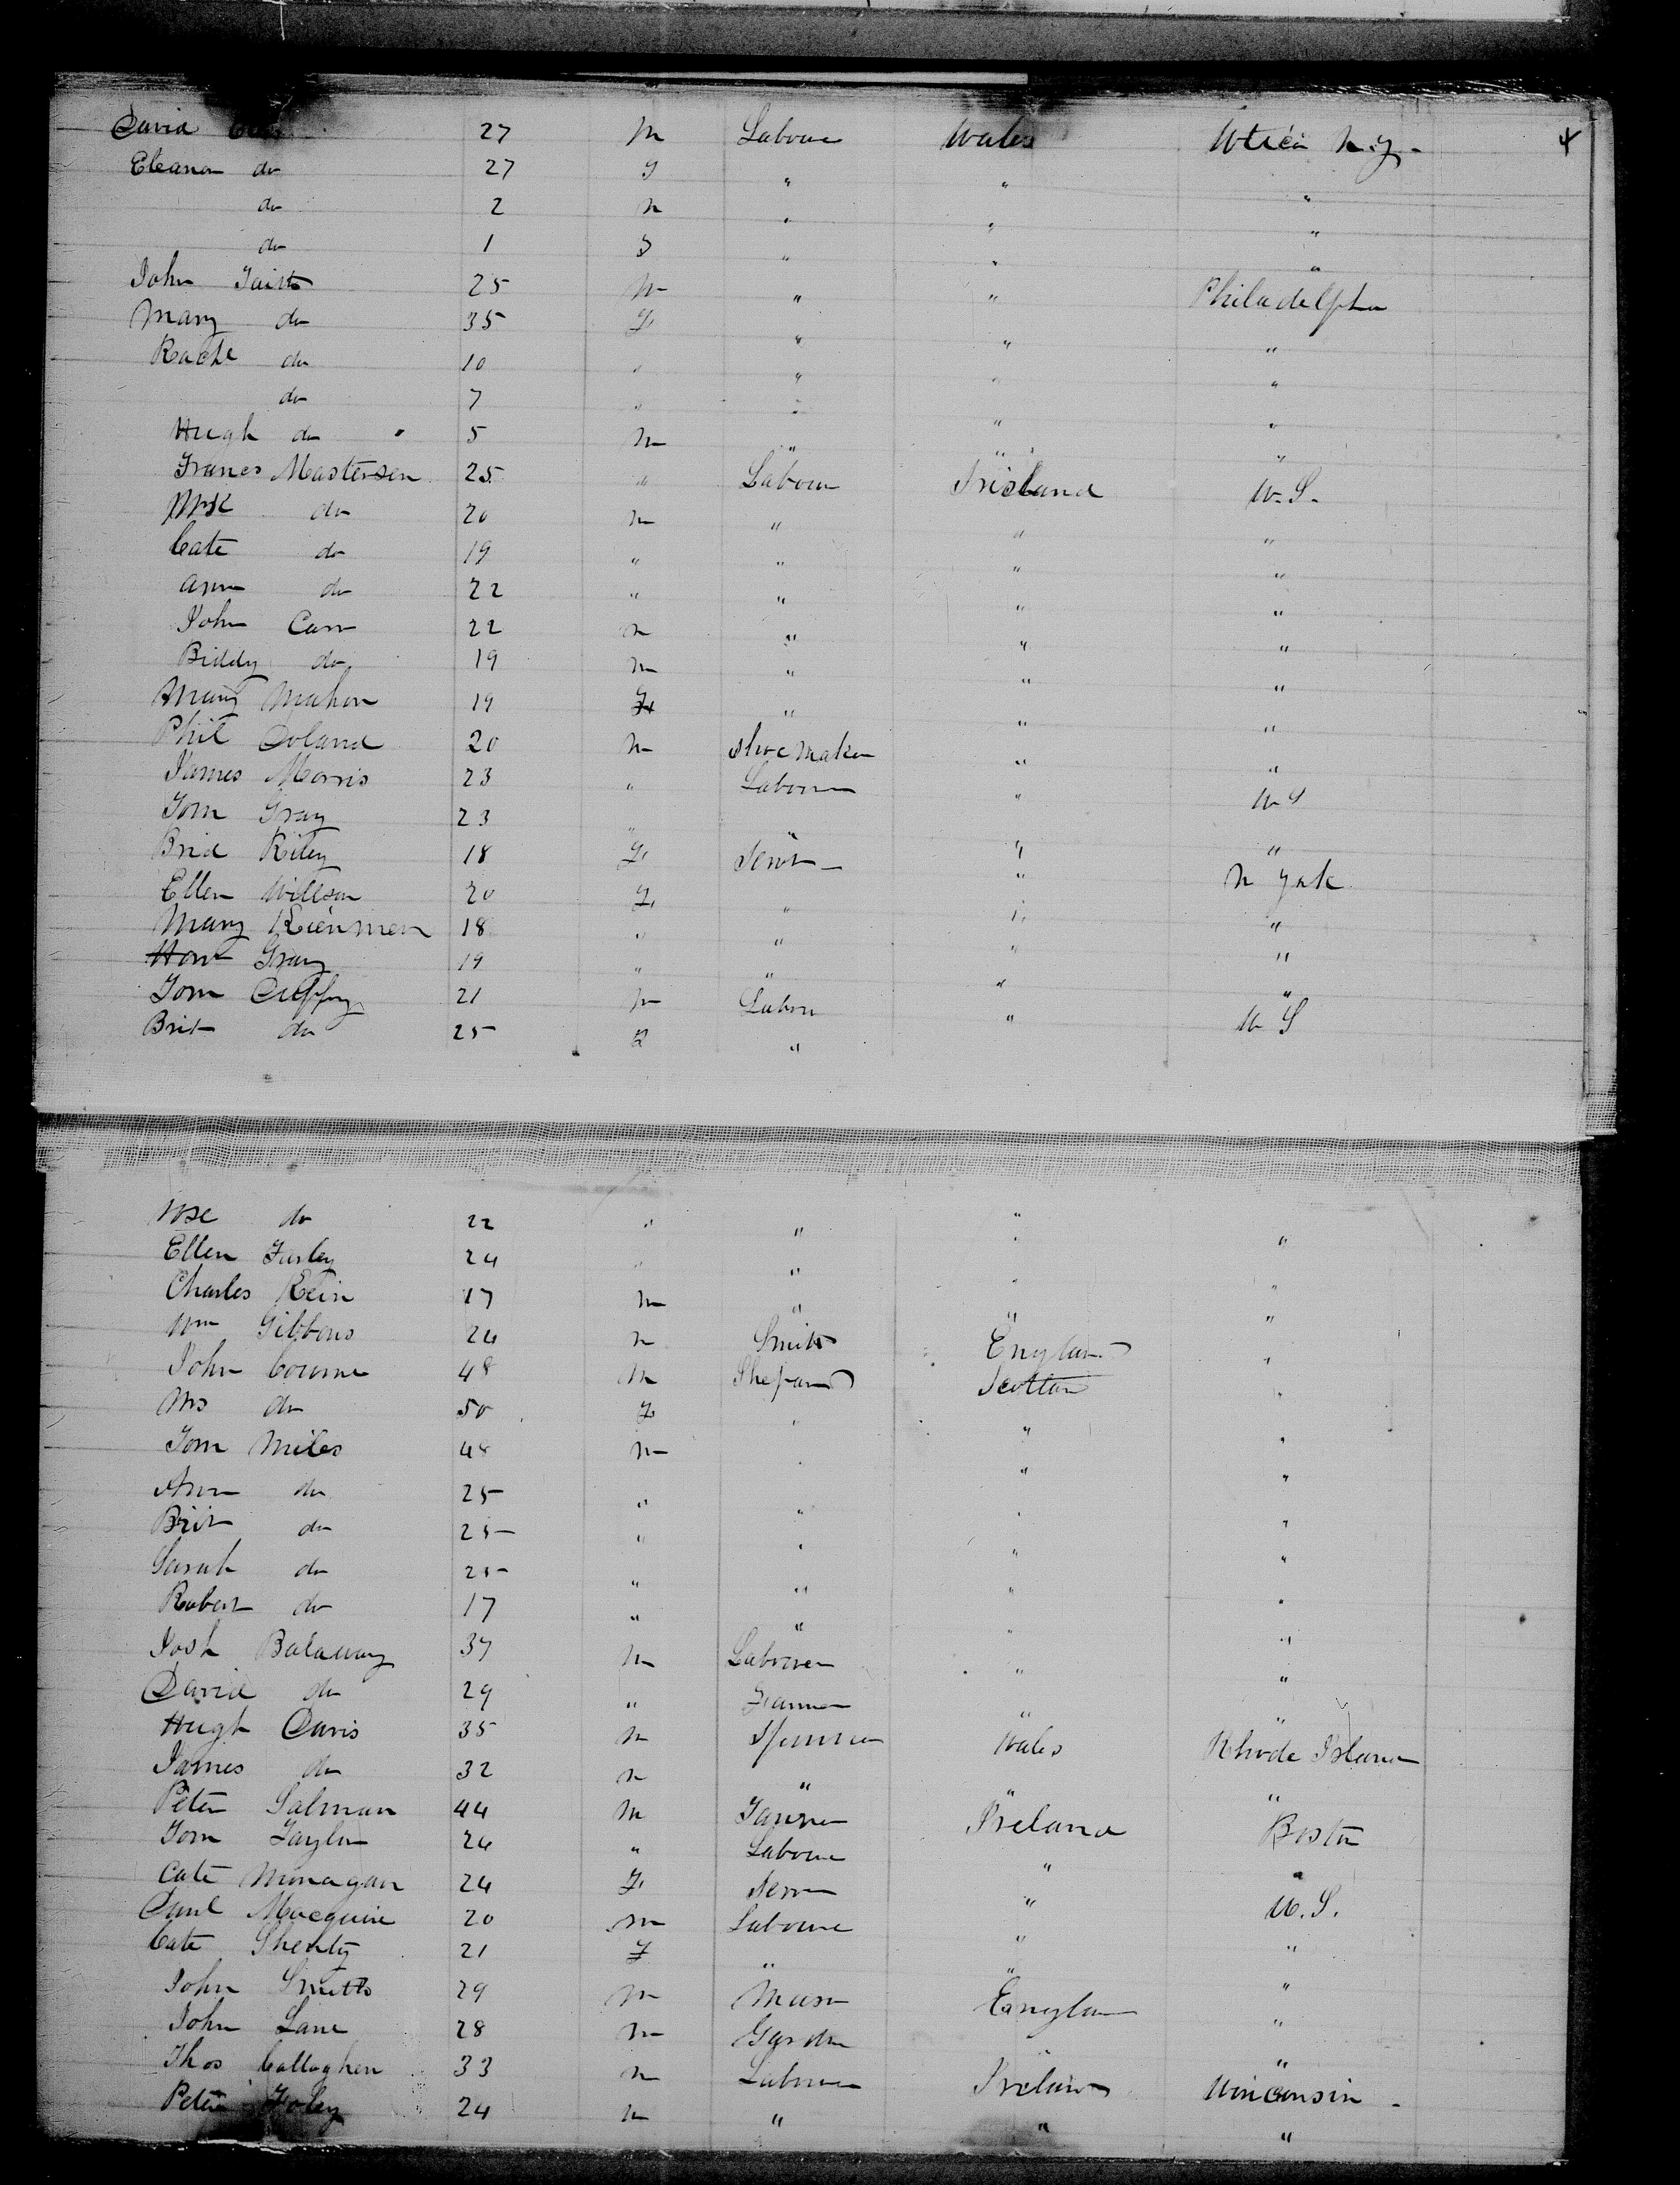 4
David 27 m Laboue Wales Utica N.Y.
Eleanor do 27 F " " "
do 2 m " " "
do 1 F " " "
John 25 m " " Philadelpha
Mary do 35 F " " "
Rache do 10 " " " "
do 7 " " " "
Hugh do 5 m " " "
Frances Mastersen 25 " Labour Irieland U.S.
do 20 m " " "
Cate do 19 " " " "
Ann do 22 " " " "
John Carr 22 m " " "
Biddy do 19 m " " "
Mary Mahon 19 F " " "
Phil Doland 20 m Shoe maker " "
James Morris 23 " Labour " U S
Tom Gray 23 " " " "
Brid Riley 18 F Servt " N York
Ellen Willson 20 F " " "
Mary 18 " " " "
Gray 19 " " " "
Tom 21 m Labou " U S
Brit do 25 "
Rose do 22 " " " "
Ellen Furley 24 " " " "
Charles Rein 17 m " " "
Wm Gibbons 24 m Smith England "
John Courne 48 m Shepard Scotland "
Mrs do 50 F " " "
Tom Miles 48 m " " "
Ann do 25 " " " "
Brit do 25 " " " "
Sarah do 25 " " " "
Robert do 17 " " " "
Josh Balaway 37 m Labourer " "
David do 29 " Farmer " "
Hugh Davis 35 m Wales Rhode Island
James do 32 m " " "
Peter Salman 44 m Tanner Ireland Boston
Tom Taylor 24 " Laboue " "
Cate Monagan 24 F Serv " U.S.
Paul Macguire 20 m Laboure " "
Cate 21 F " " "
John Smith 29 m Mason England "
John Lane 28 m Garden " "
Thos Callaghen 33 m Labourer Ireland Winconsin
Peter Foley 24 m " " "